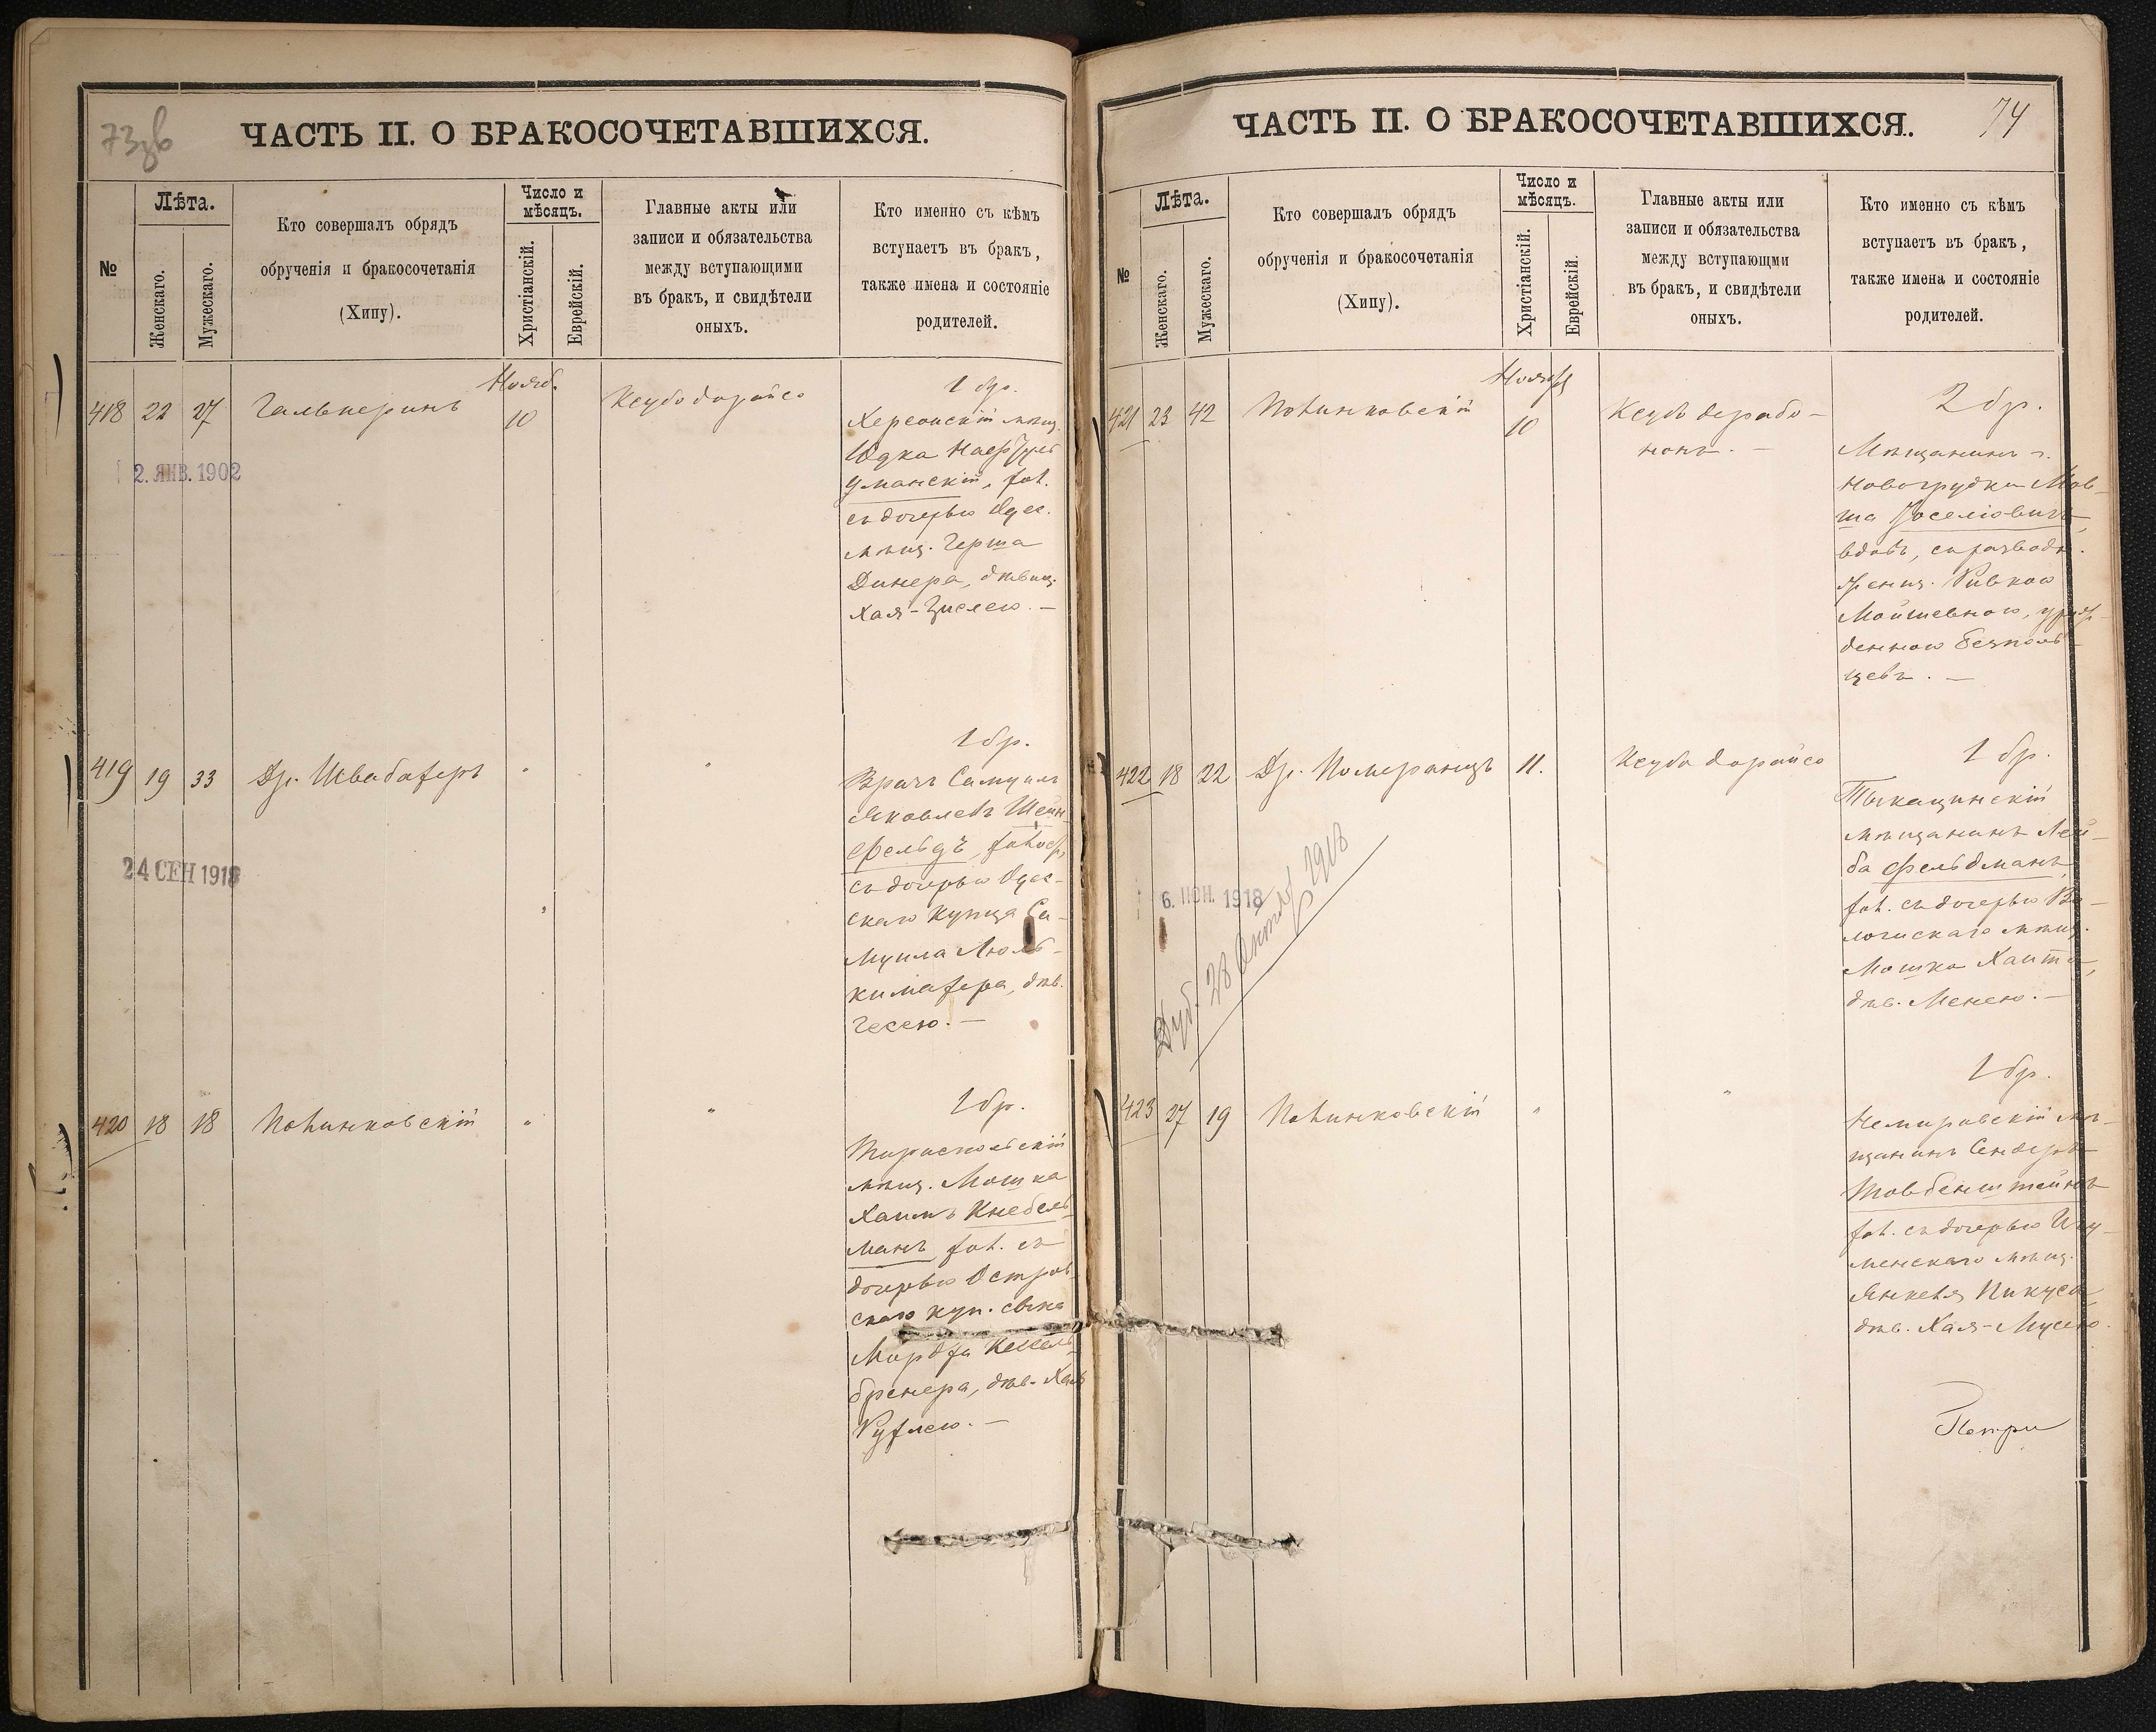 73 об
ЧАСТЬ II. О БРАКОСОЧЕТАВШИХСЯ.
№
Лѣта.
Женскаго.
Мужескаго.
Кто совершалъ обрядъ
обрученія и бракосочетанія
(Хипу).
Число и
мѣсяцъ.
Христіанскій.
Еврейскій.
Главные акты или
записи и обязательства
между вступающими
въ бракъ, и свидѣтели
оныхъ.
Кто именно съ кѣмъ
вступаетъ въ бракъ,
также имена и состояніе
родителей.
418 22 27 Гальперинъ
Нояб.
10
Ксубо дорайсо
1 бр.
Херсонскій мѣщ.
Юдка
Уманскій, хол.
съ дочерью Одес.
мѣщ. Герша
Динера, дѣвиц.
Хая-Зислею. —
2. ЯНВ. 1902
419 19 33 Др. Швабахеръ " "
1 бр.
Врачъ Самуилъ
Яковлевъ Шейн-
фельдъ, холост,
съ дочерью Одес-
скаго купца Са-
муила
дѣв.
Гесею. —
24 СЕН 1918
"
420 18 18 Полинковскій " "
1 бр.
Тираспольскій
мѣщ. Мошка
Хаимъ Кнебель-
манъ, хол. съ
дочерью Остров-
скаго куп. сына
Мордха Кесель-
бренера, дѣв. Хая
Рухлею. —
74
ЧАСТЬ II. О БРАКОСОЧЕТАВШИХСЯ.
№
Лѣта.
Женскаго.
Мужескаго.
Кто совершалъ обрядъ
обрученія и бракосочетанія
(Хипу).
Число и
мѣсяцъ.
Христіанскій.
Еврейскій.
Главные акты или
записи и обязательства
между вступающми
въ бракъ, и свидѣтели
оныхъ.
Кто именно съ кѣмъ
вступаетъ въ бракъ,
также имена и состояніе
родителей.
421 23 42 Полинковскій
Нояб
10
Ксубъ дерабо-
нонъ. —
2 бр.
Мѣщанинъ г.
Новогрудка Мов-
ша Іоселіовичъ,
вдовъ, съ разводн.
женщ. Ривкою
Мойшевною, урож-
денною Безполь-
цевъ. —
422 18 22 Др. Померанцъ 11. Ксубо дорайсо
1 бр.
Тыкацинскій
мѣщанинъ Лей-
ба Фельдманъ,
хол. съ дочерью Во-
ложискаго мѣщ.
Мошка
дѣв. Менею. —
6. ІЮН. 1918
Дуб. 28 Октября 1918
423 27 19 Полинковскій " "
1 бр.
Немировскій мѣ-
щанинъ Сендеръ
Товбенштейнъ
хол. съ дочерью Игу-
менскаго мѣщ.
Янкеля Пикуса,
дѣв. Хая-Мусею.